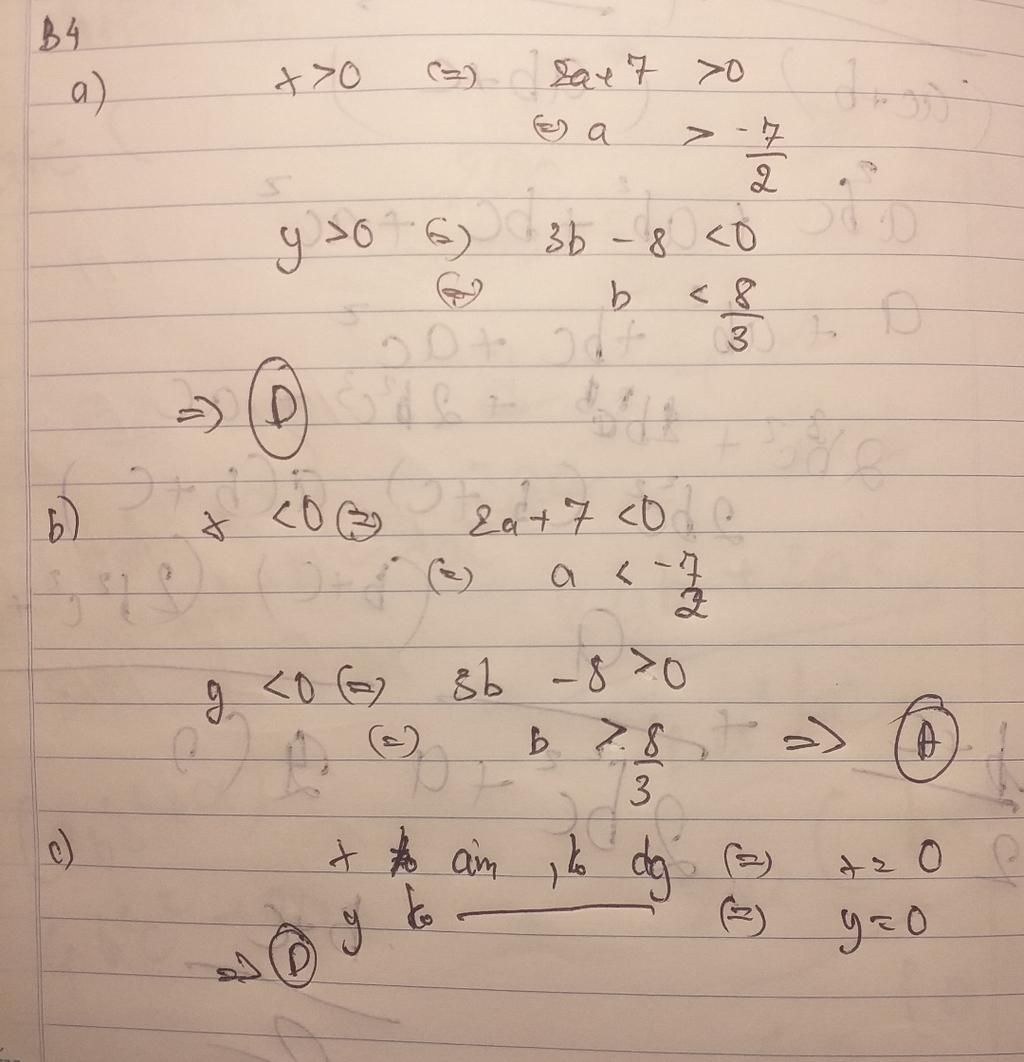 B4
a) x > 0 (=) 2a + 7 > 0
(=) a > -7/2
y > 0 (=) 3b - 8 < 0
(=) b < 8/3
=> D
b) x < 0 (=) 2a + 7 < 0
(=) a < -7/2
y < 0 (=) 3b - 8 > 0
(=) b > 8/3 => A
c) x ko âm, ko dg (=) x = 0
y ko —— (=) y = 0
=> D